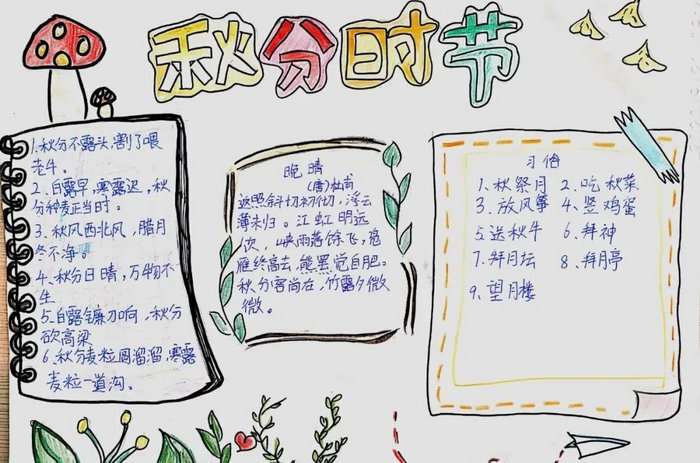 秋分时节
1.秋分不露头,割了喂
老牛。
2.白露早,寒露迟,秋
分种麦正当时。
3.秋风西北风,腊月
冬不净。
4、秋分日晴,万物不
生。
5.白露镰刀响,秋分
砍高梁
6.秋分麦粒圆溜溜,寒露
麦粒一道沟。
晚晴
(唐)杜甫
返照斜切初彻,浮云
薄未归。江虹明远
饮,峡雨落馀飞,凫
雁终高去,熊罴觉自肥。
秋分客尚在,竹露夕微
微。
习俗
1、秋祭月 2、吃秋菜
3.放风筝 4、竖鸡蛋
5.送秋牛 6、拜神
7.拜月坛 8、拜月亭
9.望月楼